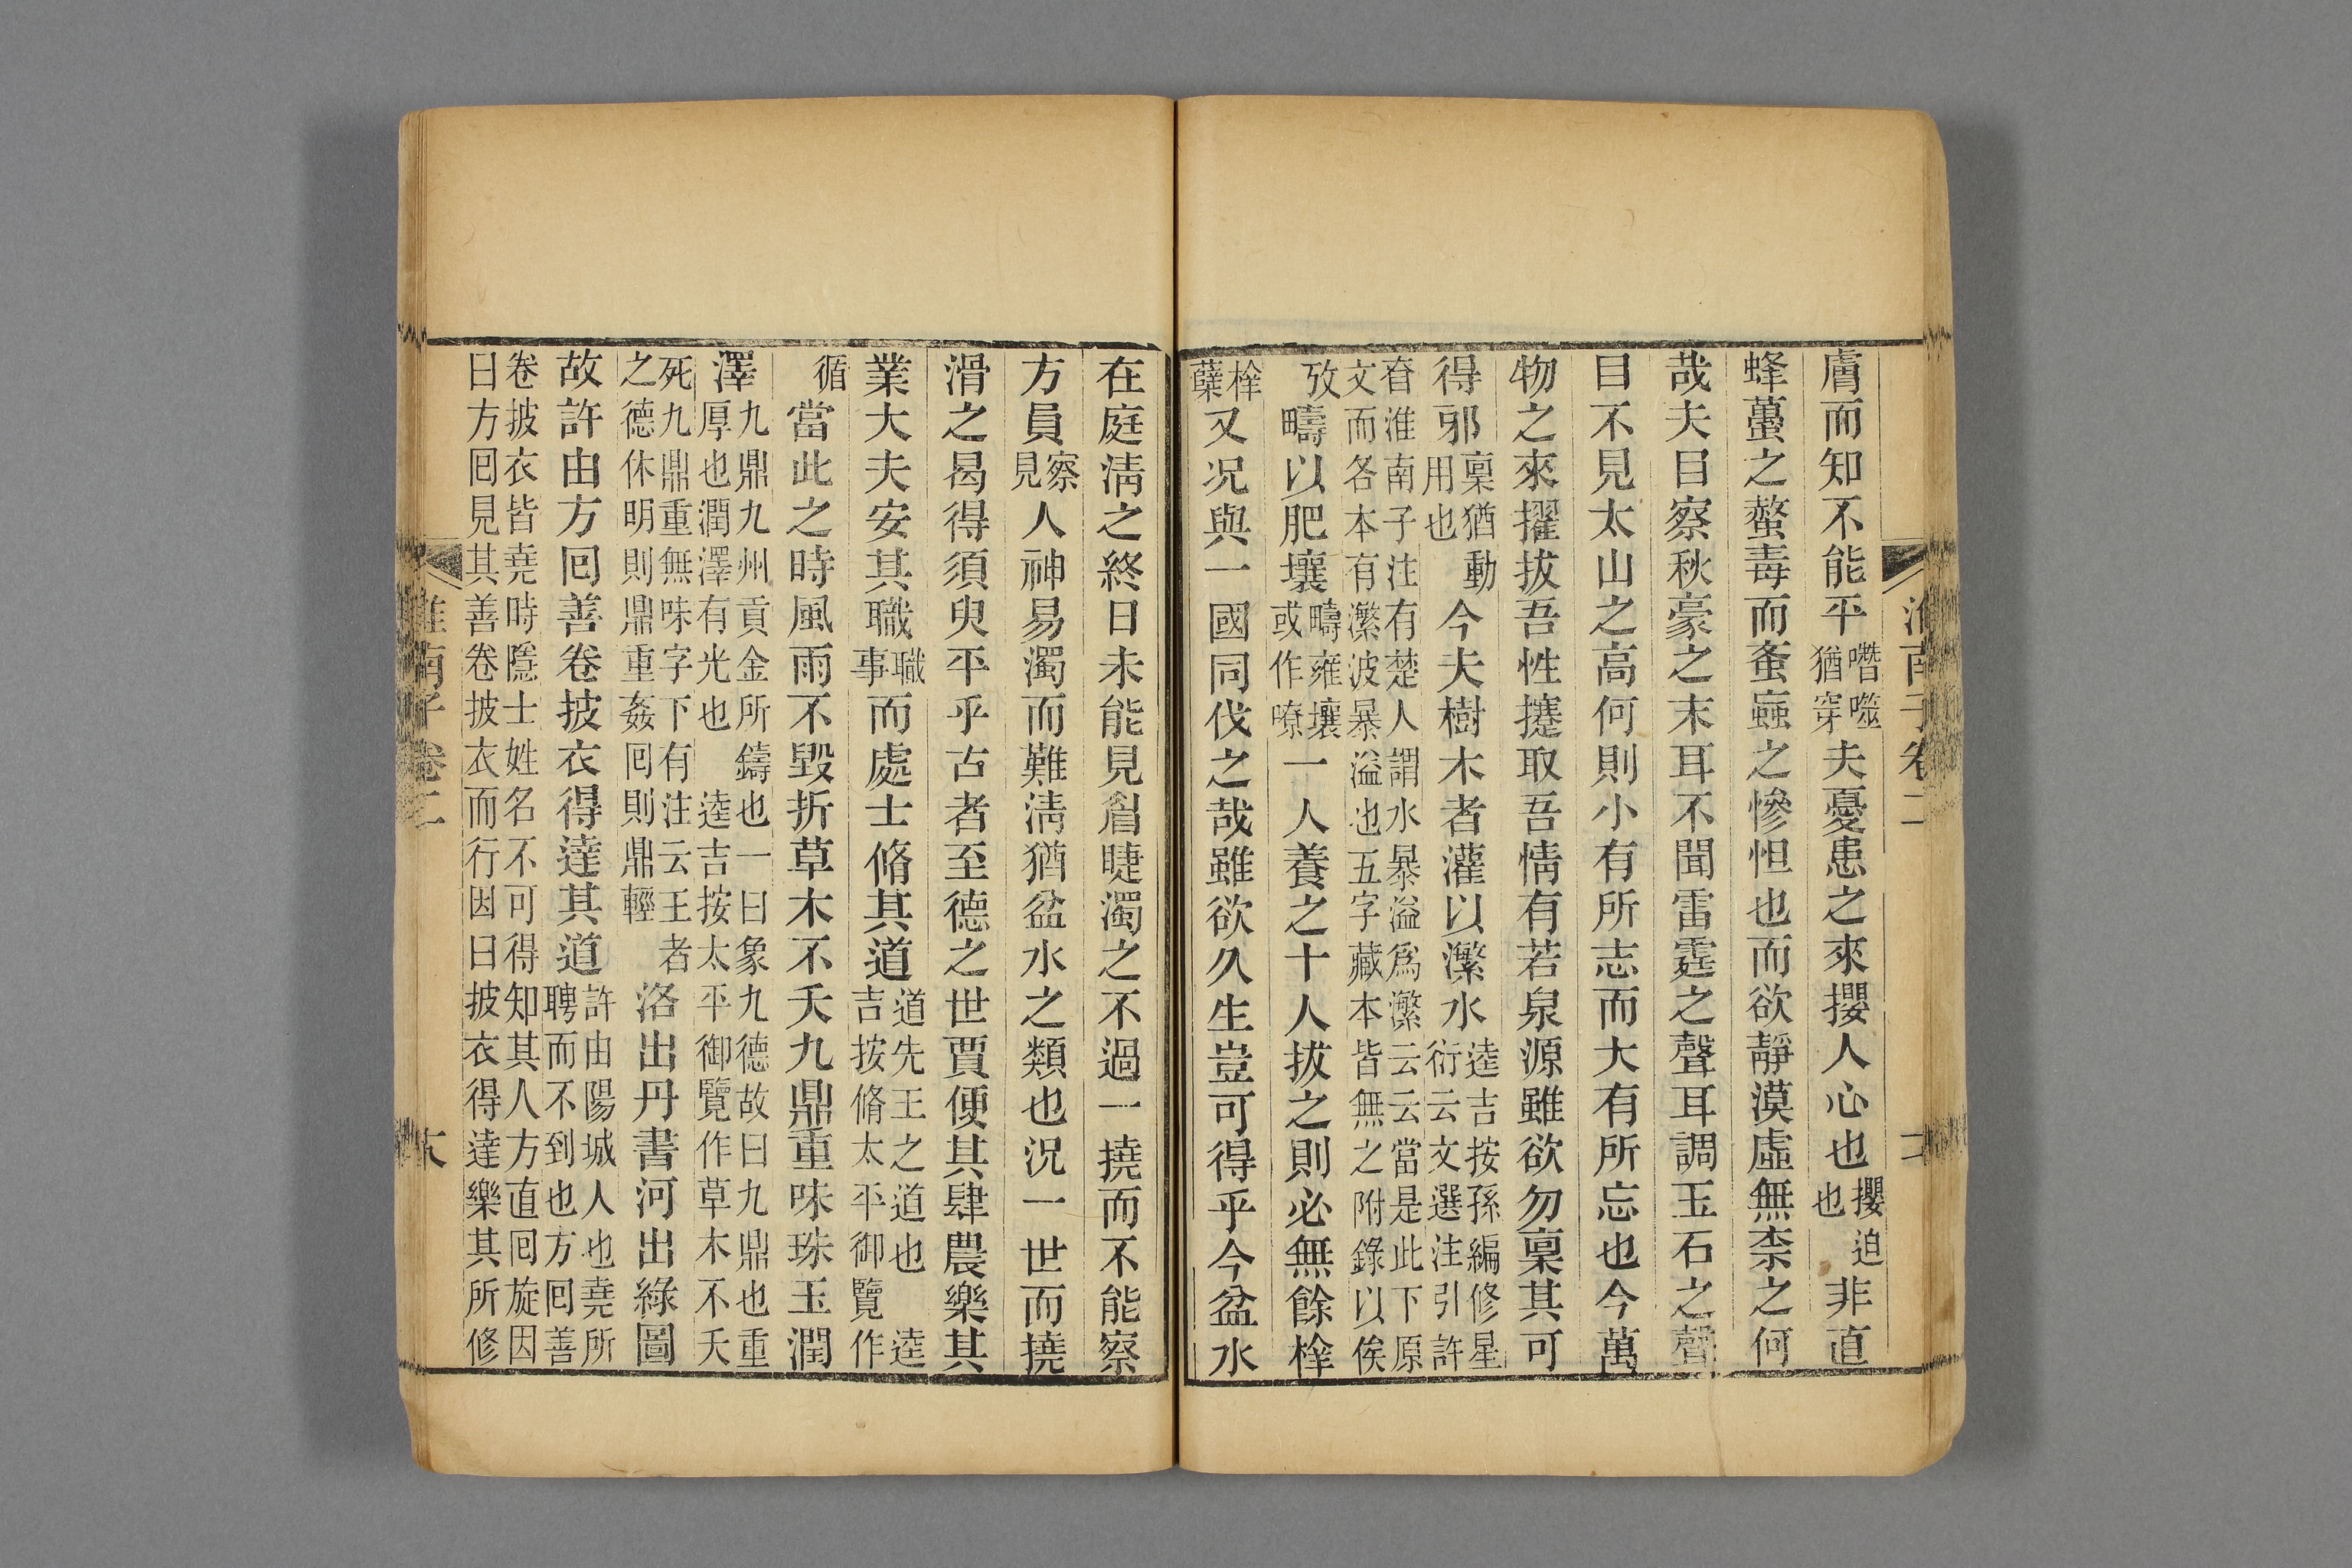 膚而知不能平噆噬猶穿夫憂患之來攖人心也攖迫也非直
蜂蠆之螫毒而蚤蝱之慘怛也而欲靜漠虛無柰之何
哉夫目察秋豪之末耳不聞雷霆之聲耳調玉石之聲
目不見太山之高何則小有所志而大有所忘也今萬
物之來擢拔吾性攓取吾情有若泉源雖欲勿稟其可
得邪稟猶動用也今夫樹木者灌以瀿水逵吉按孫編修星衍云文選注引許
昚淮南子注有楚人謂水暴溢爲瀿云云當是此下原文而各本有瀿波暴溢也五字藏本皆無之附錄以俟
攷疇以肥壤疇雍壤或作嘹一人養之十人拔之則必無餘㭕
㭕蘖又况與一國同伐之哉雖欲久生豈可得乎今盆水
在庭淸之終日未能見眉睫濁之不過一撓而不能察
方員察見人神易濁而難淸猶盆水之類也況一世而撓
滑之曷得須臾平乎古者至德之世賈便其肆農樂其
業大夫安其職職事而處士脩其道道先王之道也逵吉按脩太平御覽作
循當此之時風雨不毀折草木不夭九鼎重味珠玉潤
澤九鼎九州貢金所鑄也一曰象九德故曰九鼎也重厚也潤澤有光也逵吉按太平御覽作草木不夭
死九鼎重無味字下有注云王者之德休明則鼎重姦囘則鼎輕洛出丹書河出綠圖
故許由方囘善卷披衣得達其道許由陽城人也堯所聘而不到也方囘善
卷披衣皆堯時隱士姓名不可得知其人方直囘旋因曰方囘見其善卷披衣而行因曰披衣得達樂其所修
淮南子卷二